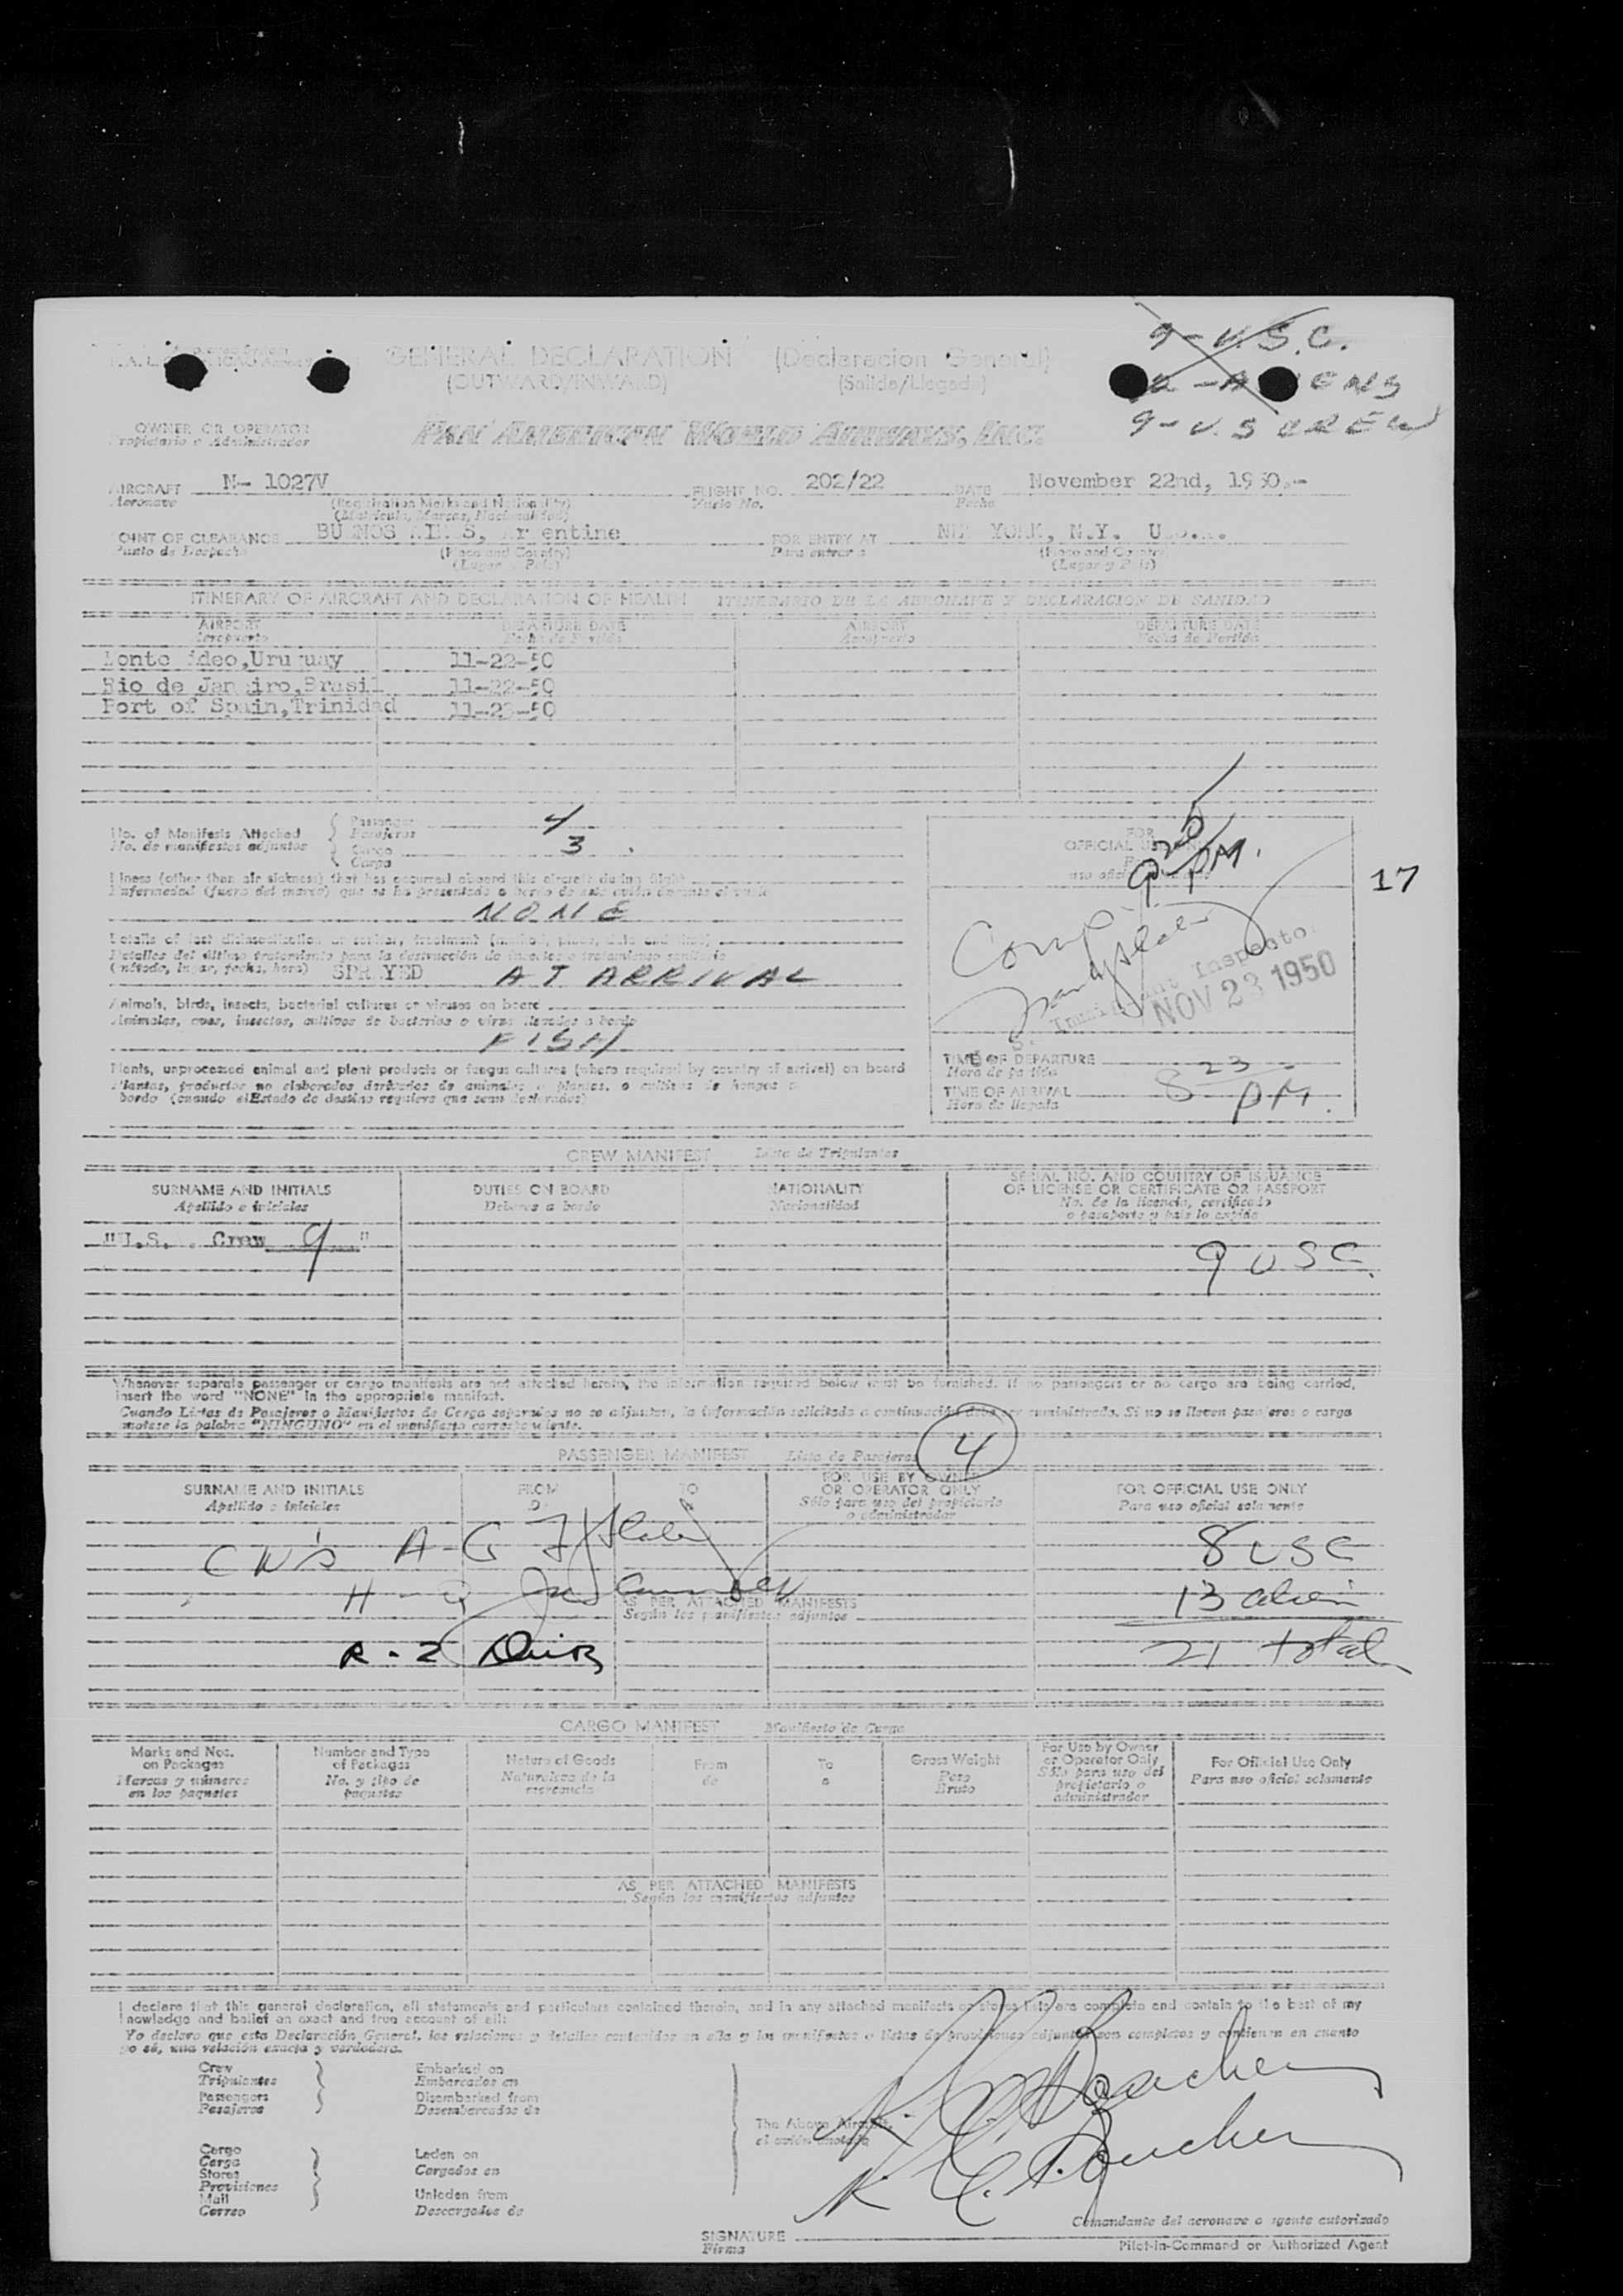 GENERAL DECLARATION (Declaracion General)
(OUTWARD/INWARD) (Salida/Llegada)
9-U.S.C.
9-U.S CREW
OWNER OR OPERATOR
Propietario o Administrador
PAN AMERICAN WORLD AIRWAYS, INC.
AIRCRAFT N- 1027V FLIGHT NO. 202/22 DATE November 22nd, 1950.-
Aeronave (Registration Marks and Nationality) Vuelo No. Fecha
(Matricula, Marcas, Nacionalidad)
POINT OF CLEARANCE BUENOS AIRES, Argentine FOR ENTRY AT NEW YORK, N.Y. U.S.A.
Punto de Despacho (Place and Country) Para entrar a (Place and Country)
(Lugar y País) (Lugar y País)
ITINERARY OF AIRCRAFT AND DECLARATION OF HEALTH ITINERARIO DE LA AERONAVE Y DECLARACION DE SANIDAD
AIRPORT DEPARTURE DATE AIRPORT DEPARTURE DATE
Aeropuerto Fecha de Partida Aeropuerto Fecha de Partida
Montevideo,Uruguay 11-22-50
Rio de Janeiro,Brasil 11-22-50
Port of Spain,Trinidad 11-23-50
No. of Manifests Attached Passenger 4
No. de manifiestos adjuntos Pasajeros
Cargo 3
Carga
FOR
OFFICIAL USE ONLY
PM.
17
Illness (other than air sickness) that has occurred aboard this aircraft during flight
Enfermedad (fuera del mareo) que se ha presentado a bordo de este avión durante el vuelo
NONE
Details of last disinsectization or sanitary treatment (method, place, date and time)
Detalles del último tratamiento para la destrucción de insectos o tratamiento sanitario
(método, lugar, fecha, hora) SPRAYED AT ARRIVAL
Immigrant Inspector
NOV 23 1950
Animals, birds, insects, bacterial cultures or viruses on board
Animales, aves, insectos, cultivos de bacterias o virus llevados a bordo
FISH
Plants, unprocessed animal and plant products or fungus cultures (where required by country of arrival) on board
Plantas, productos no elaborados derivados de animales o plantas, o cultivos de hongos a
bordo (cuando el Estado de destino requiera que sean declarados)
TIME OF DEPARTURE
Hora de partida
TIME OF ARRIVAL 8 23 PM.
Hora de llegada
CREW MANIFEST Lista de Tripulantes
SURNAME AND INITIALS DUTIES ON BOARD NATIONALITY SERIAL NO. AND COUNTRY OF ISSUANCE
OF LICENSE OR CERTIFICATE OR PASSPORT
Apellido e iniciales Deberes a bordo Nacionalidad No. de la licencia, certificado
o pasaporte y país lo expide
"U.S. Crew 9"
9 USC.
Whenever separate passenger or cargo manifests are not attached herein, the information required below must be furnished. If no passengers or no cargo are being carried,
insert the word "NONE" in the appropriate manifest.
Cuando Listas de Pasajeros o Manifiestos de Carga separados no se adjunten, la información solicitada a continuación debe ser suministrada. Si no se lleven pasajeros o carga
anotese la palabra "NINGUNO" en el manifiesto correspondiente.
PASSENGER MANIFEST Lista de Pasajeros 4
SURNAME AND INITIALS FROM TO FOR USE BY OWNER
OR OPERATOR ONLY FOR OFFICIAL USE ONLY
Apellido e iniciales De A Sólo para uso del propietario
o administrador Para uso oficial solamente
A-G 8 USC
H-Q 13 alien
AS PER ATTACHED MANIFESTS
Según los manifiestos adjuntos
R-Z 21 total
CARGO MANIFEST Manifiesto de Carga
Marks and Nos.
on Packages
Marcas y números
en los paquetes
Number and Type
of Packages
No. y tipo de
paquetes
Nature of Goods
Naturaleza de la
mercancia
From
de
To
a
Gross Weight
Peso
Bruto
For Use by Owner
or Operator Only
Sólo para uso del
propietario o
administrador
For Official Use Only
Para uso oficial solamente
AS PER ATTACHED MANIFESTS
Según los manifiestos adjuntos
I declare that this general declaration, all statements and particulars contained therein, and in any attached manifests or stores lists are complete and contain to the best of my
knowledge and belief an exact and true account of all:
Yo declaro que esta Declaración General, las relaciones y detalles contenidos en ella y los manifiestos o listas de provisiones adjuntas son completos y contienen en cuanto
yo sé, una relación exacta y verdadera.
Crew
Tripulantes
Passengers
Pasajeros
Embarked on
Embarcados en
Disembarked from
Desembarcados de
The Above Aircraft,
el avión anotado
Cargo
Carga
Stores
Provisiones
Mail
Correo
Laden on
Cargados en
Unladen from
Descargados de
Comandante del aeronave o agente autorizado
SIGNATURE
Firma
Pilot-in-Command or Authorized Agent